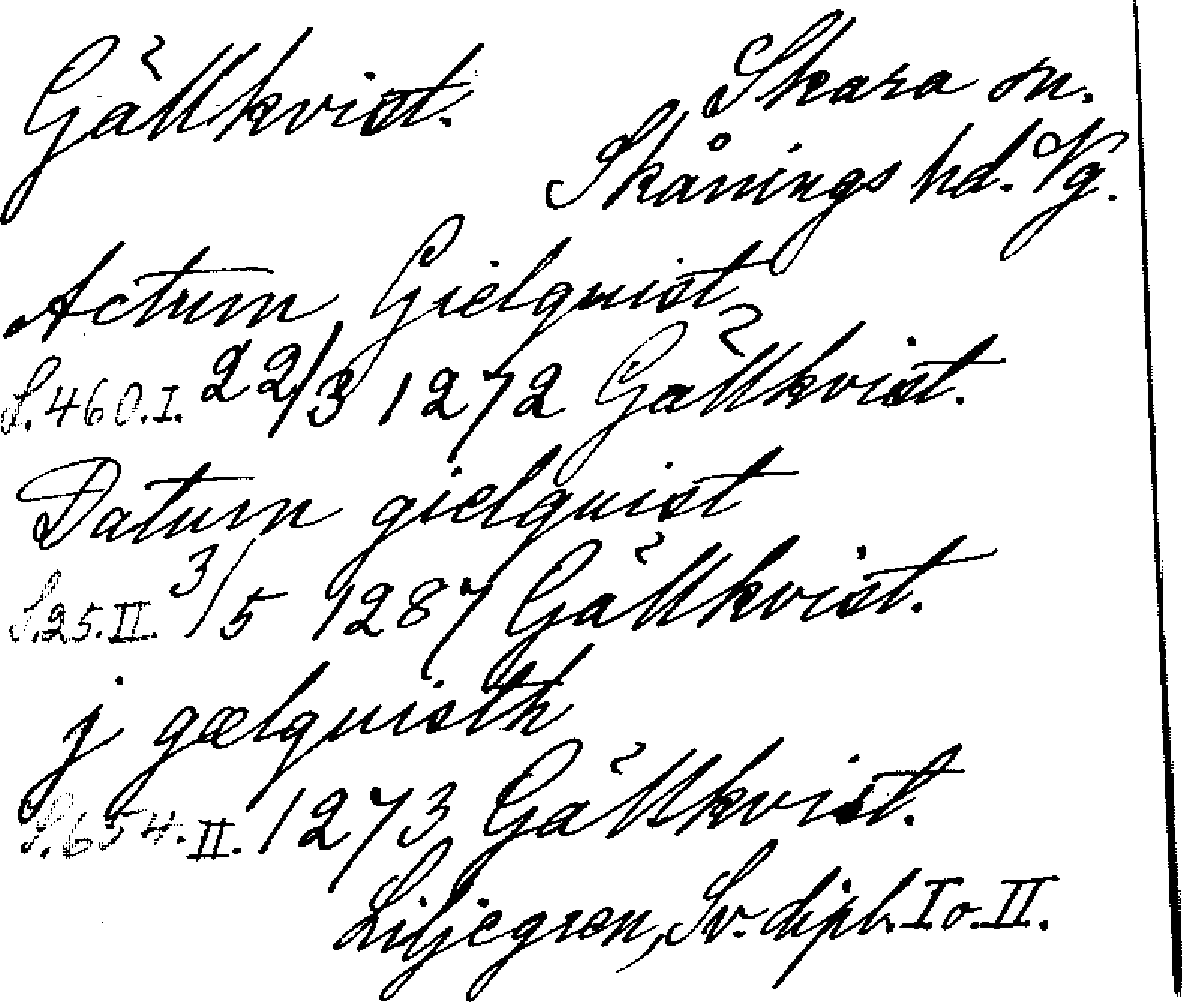 Gällkvist. Skara sn.
Skånings hd. Vg.
Actum Gielquist
S. 460. I. 22/3 1272 Gällkvist.
Datum gielquist
S. 25. II. 3/5 1287 Gällkvist.
j gælquisth
S. 654. II. 1273 Gällkvist.
Liljegren, Sv. dipl. I o. II.